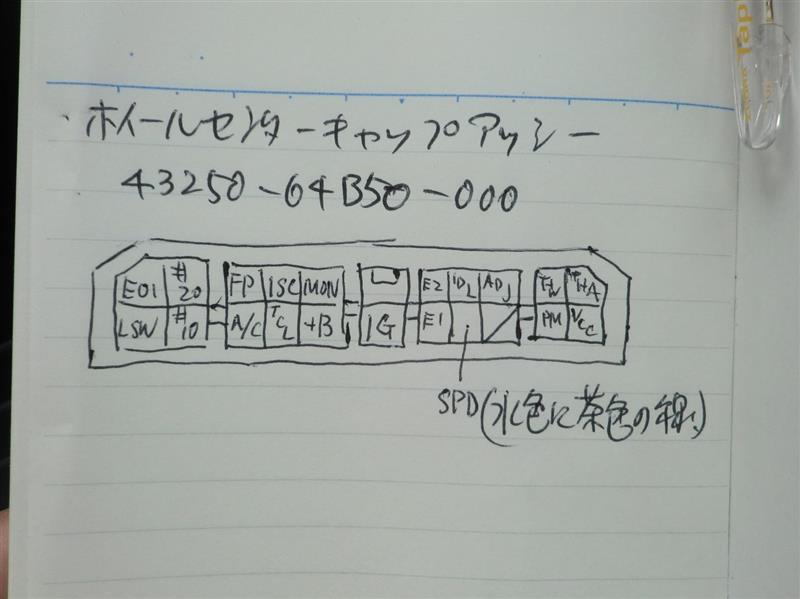 ・ホイールセンターキャップアッシー
43250-64B50-000
E01 #20 FP ISC MON E2 IDL ADJ THW THA
LSW #10 A/C TCL +B IG E1 PM VCC
SPD(水色に茶色の線)